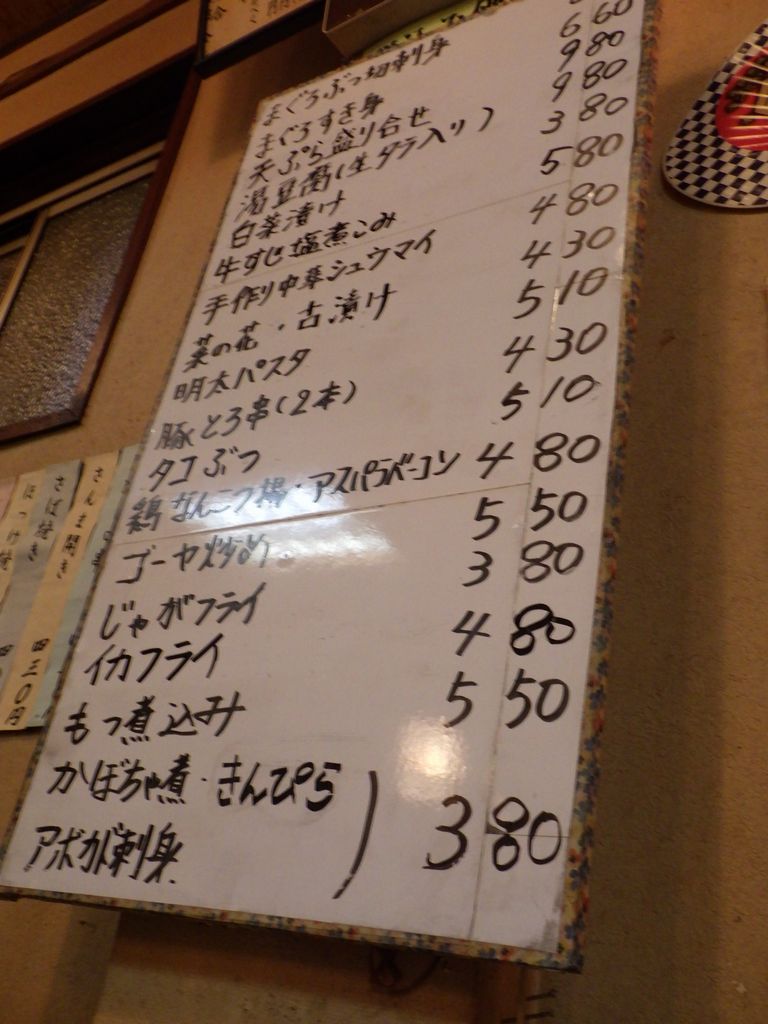 まぐろぶつ切刺身
まぐろすき身 660
天ぷら盛り合せ 980
湯豆腐(生タラ入り) 980
白菜漬け 380
牛すじ塩煮こみ 580
手作り中華シュウマイ 480
菜の花・古漬け 430
明太パスタ 510
豚とろ串(2本) 430
タコぶつ 510
鶏なんこつ揚・アスパラベーコン 480
ゴーヤ炒め 550
じゃがフライ 380
イカフライ 480
もつ煮込み 550
かぼちゃ煮・きんぴら
アボカド刺身 ) 380
さんま開き
さば焼き 四三0円
ほっけ焼